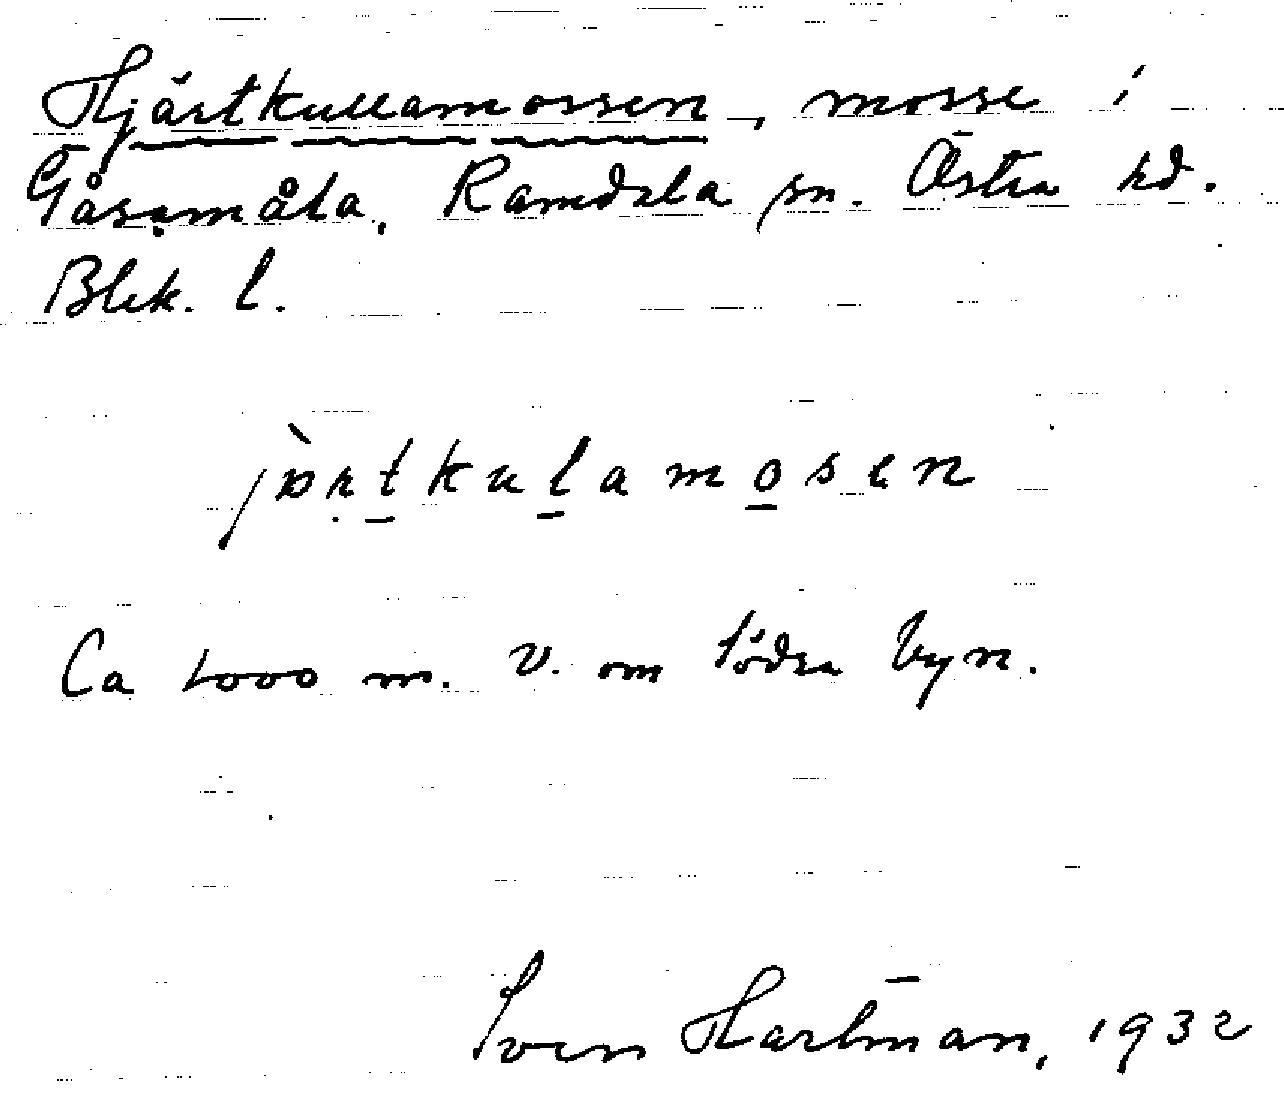 Hjärtkullamossen, mosse i
Gåsamåla, Ramdala sn. Östra hd.
Blek. l.
jòrtkulamosen
Ca 1000 m. v. om södra byn.
Sven Hartman, 1932